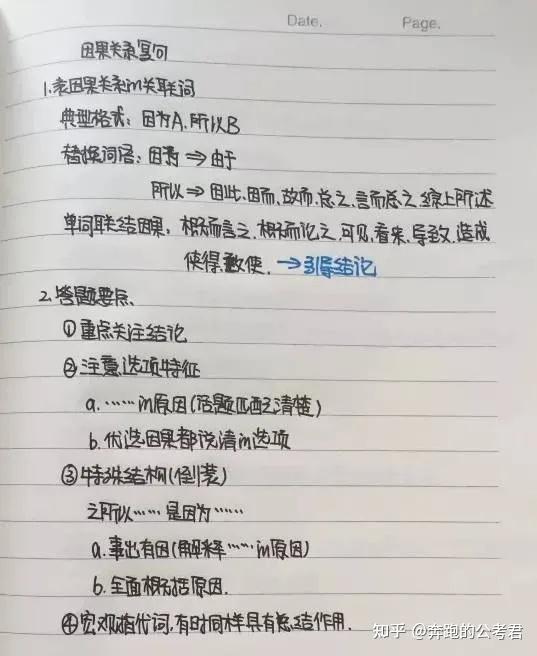 Date. Page.
因果关系复句
1.表因果关系的关联词
典型格式：因为A，所以B
替换词语：因为⇒由于
所以⇒因此、因而、故而、总之、言而总之、综上所述
单词联结因果，概而言之、概而论之、可见、看来、导致、造成
使得、致使、→引导结论
2.答题要点、
①重点关注结论
②注意选项特征
a.……的原因(话题匹配清楚)
b.优选因果都说清的选项
③特殊结构(倒装)
之所以……是因为……
a.事出有因(解释……的原因)
b.全面概括原因.
④宏观指代词,有时同样具有总结作用.
知乎 @奔跑的公考君